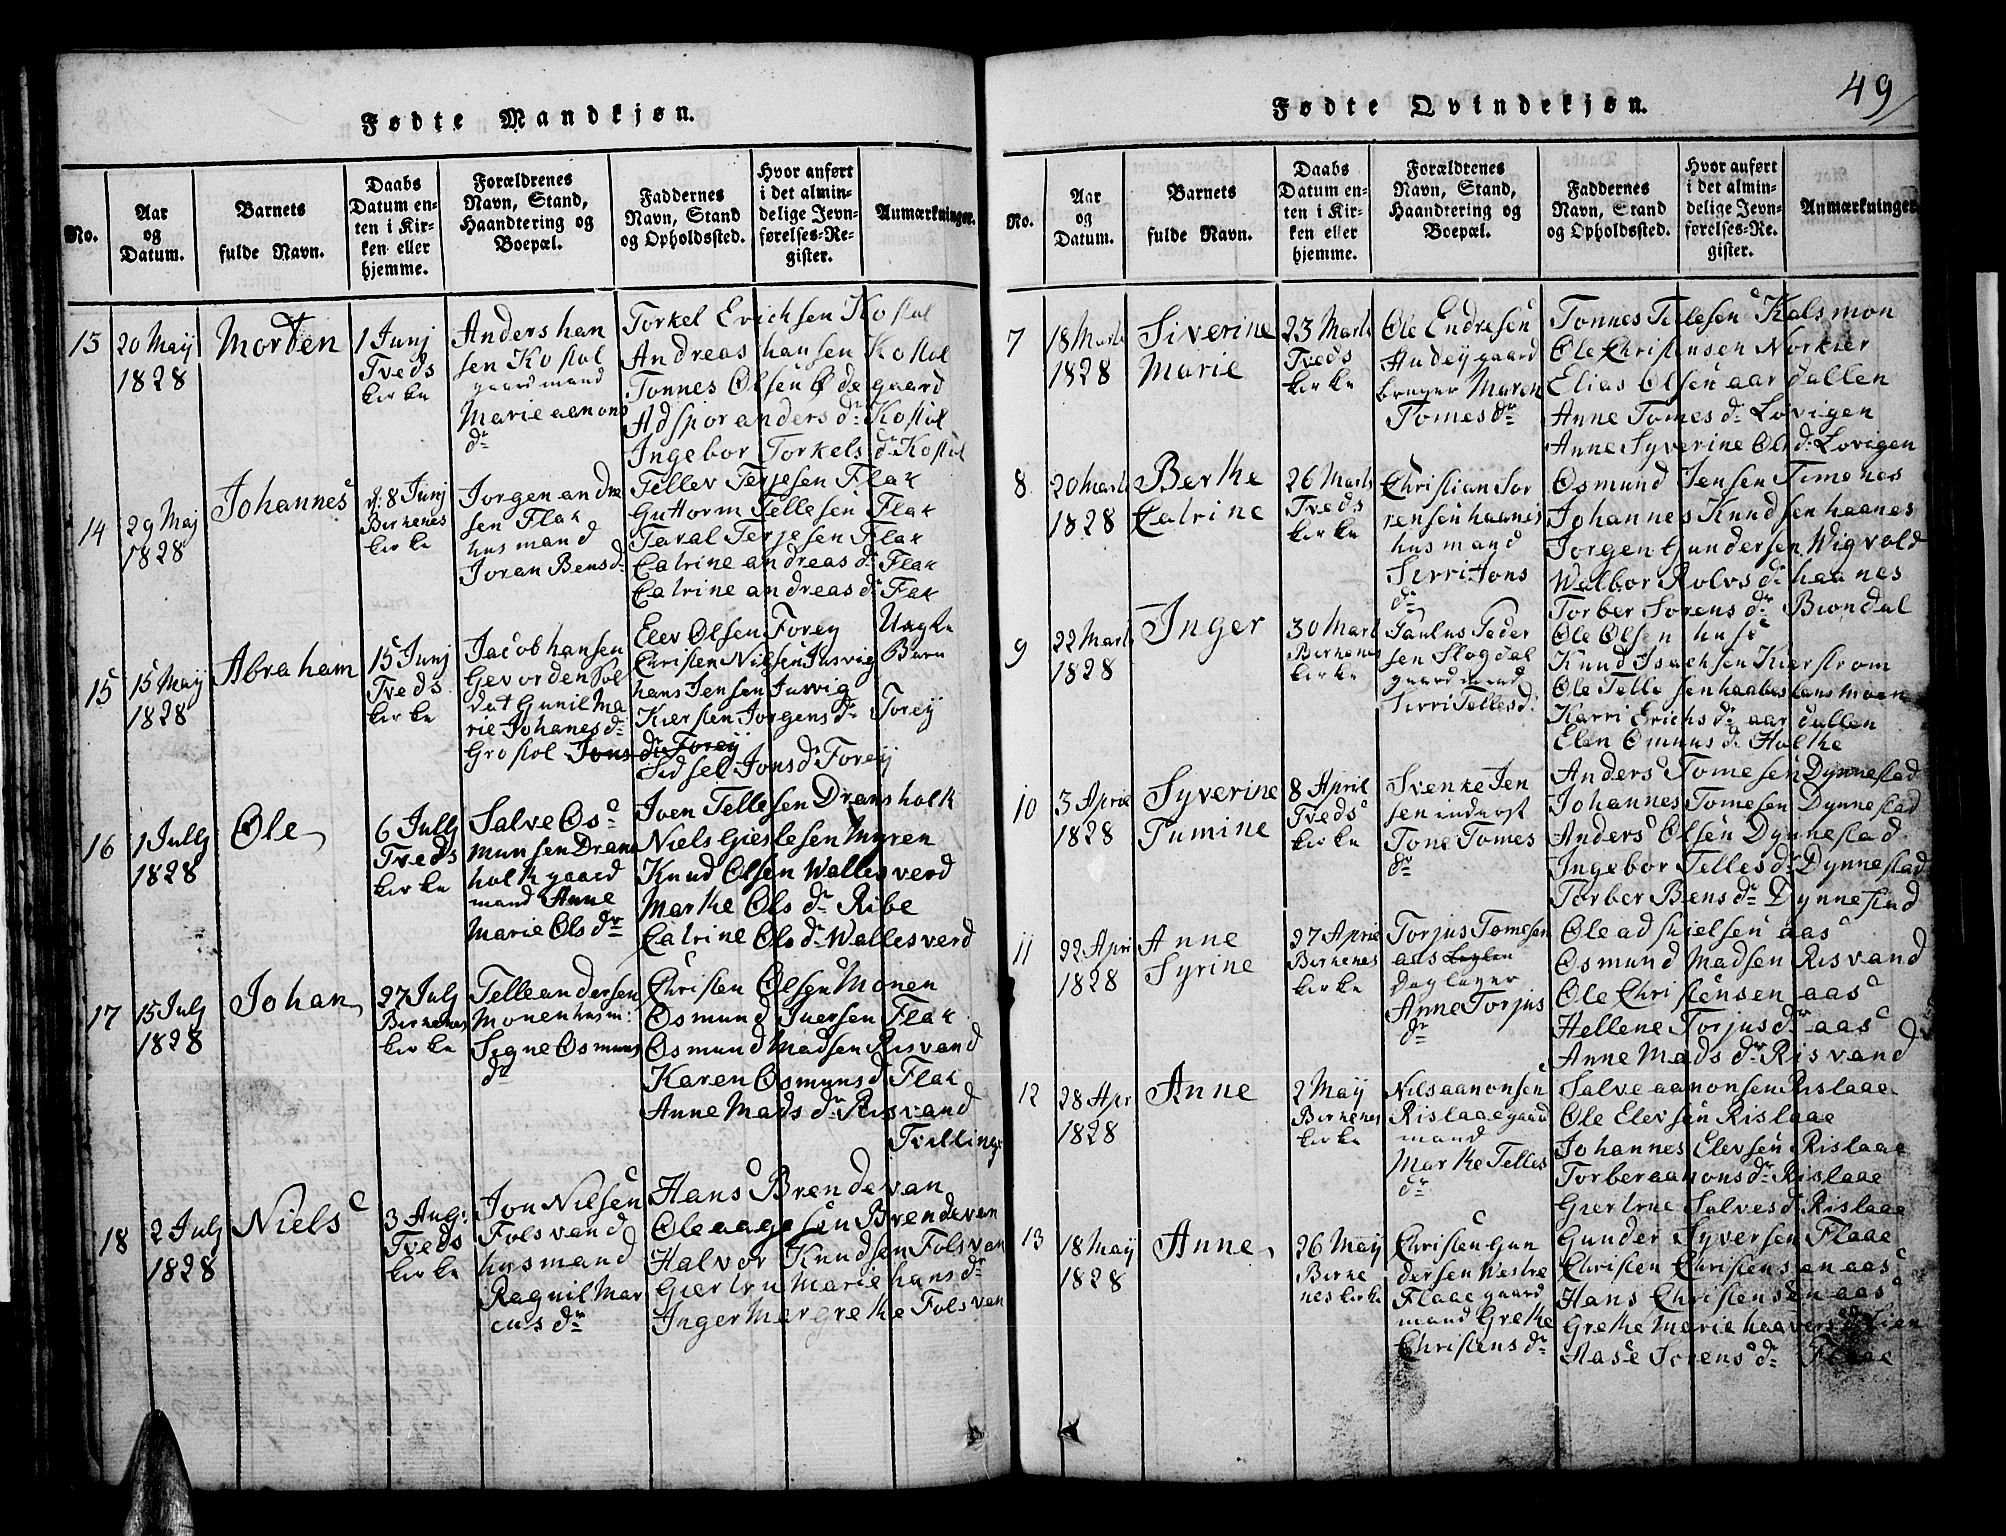 49
Fødte Mandkjøn.
No.
Aar
og
Datum.
Barnets
fulde Navn.
Daabs
Datum en-
ten i Kir-
ken eller
hjemme.
Forældrenes
Navn, Stand,
Haandtering og
Boepæl.
Faddernes
Navn, Stand
og Opholdssted.
Hvor anført
i det almin-
delige Jevn-
førelses-Re-
gister.
Anmærkninger.
15
20 Maij
1828
Morten
1 Junj
Tveds
kirke
Anders han
sen Kostøl
gaardmand
Marie aamons
dr
Torkel Erichsen Kostøl
Andreas hansen Kostøl
Tonnes Olsen Ødegaard
Adspor anders dr Kostøl
Ingebor Torkels dr Kostøl
14
29 Maj
1828
Johannes
d: 8 Junj
Birkenes
kirke
Jorgen andre
sen Flak
husmand
Joran Bens dr
Tellev Terjesen Flak
Guttorm Tellesen Flak
Taral Terjesen Flak
Catrine andreas dr Flak
Catrine andreas dr Flak
15
15 Maij
1828
Abraham
15 Junj
Tveds
kirke
Jacob hansen
Gevorden Sol
dat Gunil Ma
rie Johanes dr
Grostøl
Elev Olsen Forey
Christen Nilsen Jusvig
hans Jensen Jusvig
Kiersten Jorgens dr Forey
Jons dr Forey
Sidsel Jons dr Forey
Uægte
Barn
16
1 Julj
1828
Ole
6 Julj
Tveds
kirke
Salve Os
munsen Drans
holt gaard
mand Anne
Marie Ols dr
Joen Tellesen Dransholt
Niels Gieslesen Myren
Knud Olsen Wallesverd
Marthe Ols dr Ribe
Catrine Ols dr Wallesverd
17
15 Julj
1828
Johan
27 Julj
Birkenes
kirke
Telle andersen
Monen husm:
Signe Osmuns
dr
Christen Olsen Monen
Osmund Iuersen Flak
Osmund Madsen Risvand
Karen Osmuns d Flak
Anne Mads dr Risvand
Tvilling
18
2 Julj
1828
Niels
3 Aug:
Tveds
kirke
Jon Nilsen
Folsvand
husmand
Ragnil Mar
cus dr
Hans Brendevan
Ole aagesen Brendevan
Halvor Knudsen Folsvan
Giertru Marie hans dr
Inger Margrethe Folsvan
Fødte Qvindekjøn.
No.
Aar
og
Datum.
Barnets
fulde Navn.
Daabs
Datum en-
ten i Kir-
ken eller
hjemme.
Forældrenes
Navn, Stand,
Haandtering og
Boepæl.
Faddernes
Navn, Stand
og Opholdssted.
Hvor anført
i det almin-
delige Jevn-
førelses-Re-
gister.
Anmærkninger
7
18 Marts
1828
Siverine
Marie
23 Marts
Tveds
kirke
Ole Endresen
gaard
bruger Maren
Tomes dr
Tonnes Tellesen Kalsmon
Ole Christensen Norkier
Elias Olsen aardallen
Anne Tomes dr Lovigen
Anne Syverine Ols d: Lovigen
8
20 Marts
1828
Berthe
Catrine
26 Marts
Tveds
kirke
Christian Sor
rensen haanes
husmand
Sirri Jons
dr
Osmund Jensen Timenes
Johannes Knudsen haanes
Jorgen Gundersen Wigvold
Walbor Rolvs dr haanes
Torber Sorens dr Biondal
9
22 Marts
1828
Inger
30 Mart
Birkenes
kirke
Paulus Peder
sen Slogdal
gaardmand
Sirri Telles d:
Ole Olsen huse
Knud Isachsen Kierstrom
Ole Tellesen
Karri Erichs dr aardallen
Elen Omuns dr Holte
10
3 Aprie
1828
Syverine
Tumine
8 April
Tveds
kirke
Svenke Jen
sen inderst
Tone Tomes
dr
Anders Tomesen Dynnestad
Johannes Tomesen Dynnestad
Anders Olsen Dynnestad
Ingebor Telles dr Dynnestad
Torber Bens dr Dynnestad
11
22 Apri
1828
Anne
Syrine
27 Aprie
Birkenes
kirke
Torjus Tomesen
aas
dagleyer
Anne Torjus
dr
Ole adskielsen aas
Osmund Madsen Risvand
Ole Christensen aas
Hellene Torjus dr aas
Anne Mads dr Risvand
12
28 Apr
1828
Anne
2 Maij
Birkenes
kirke
Nils aanonsen
Rislaae gaard
mand
Marthe Telles
dr
Salve aanonsen Rislaae
Ole Elevsen Rislaae
Johannes Elevsen Rislaae
Torber aanons dr Rislaae
Giertrue Salves d Rislaae
13
18 Maij
1828
Anne
26 Maij
Birke
nes kirke
Christen Gun
dersen Westre
Flaae gaard
mand Grethe
Christens dr
Gunder Syversen Flaae
Christen Christensen aas
Hans Christensen aas
Grethe Marie haavors d Lien
Aase Sorens dr Flaae